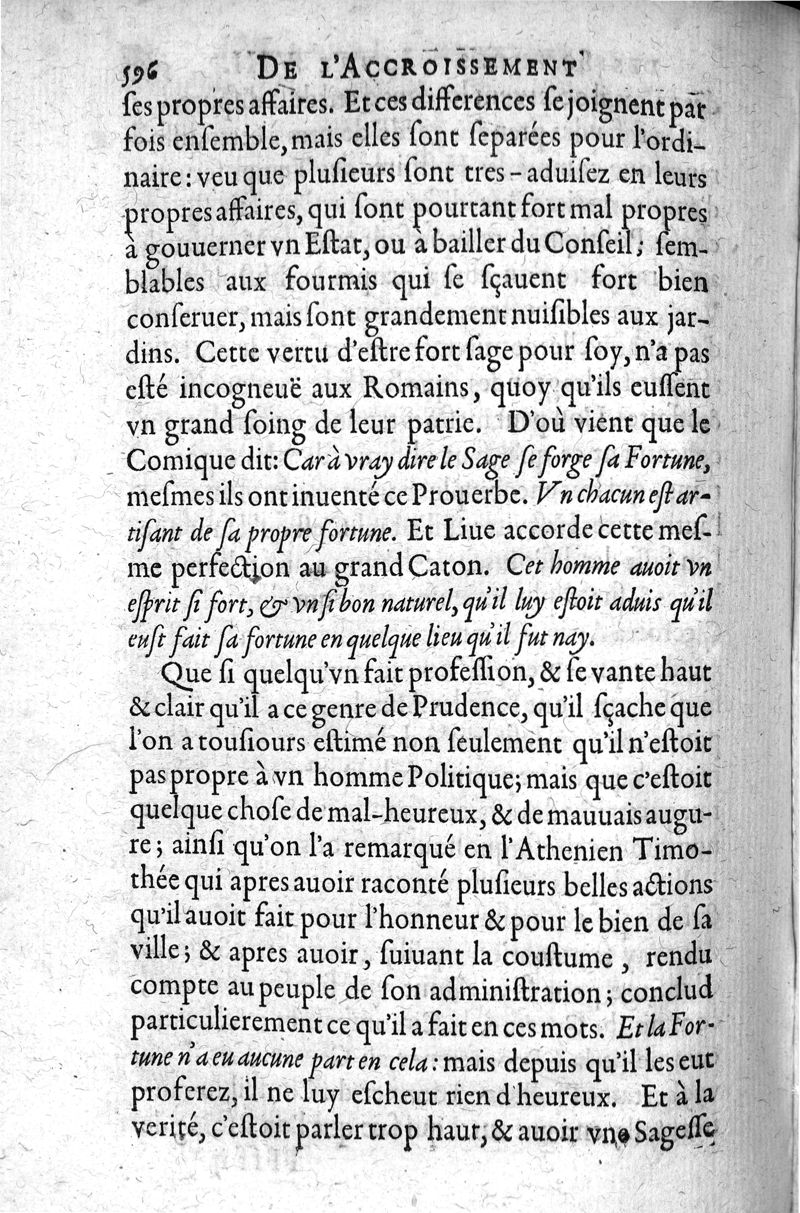 596 DE L'ACCROISSEMENT
ſes propres affaires. Et ces differences ſe joignent par
fois enſemble, mais elles ſont ſeparées pour l'ordi-
naire : veu que pluſieurs ſont tres-aduiſez en leurs
propres affaires, qui ſont pourtant fort mal propres
à gouuerner vn Eſtat, ou à bailler du Conſeil; ſem-
blables aux fourmis qui ſe ſçauent fort bien
conſeruer, mais ſont grandement nuiſibles aux jar-
dins. Cette vertu d'eſtre fort ſage pour ſoy, n'a pas
eſté incogneuë aux Romains, quoy qu'ils euſſent
vn grand ſoing de leur patrie. D'où vient que le
Comique dit: Car à vray dire le Sage ſe forge ſa Fortune,
meſmes ils ont inuenté ce Prouerbe. Vn chacun eſt ar-
tiſant de ſa propre fortune. Et Liue accorde cette meſ-
me perfection au grand Caton. Cet homme auoit vn
eſprit ſi fort, & vn ſi bon naturel, qu'il luy eſtoit aduis qu'il
euſt fait ſa fortune en quelque lieu qu'il fut nay.
Que ſi quelqu'vn fait profeſſion, & ſe vante haut
& clair qu'il a ce genre de Prudence, qu'il ſçache que
l'on a touſiours eſtimé non ſeulement qu'il n'eſtoit
pas propre à vn homme Politique; mais que c'eſtoit
quelque choſe de mal-heureux, & de mauuais augu-
re; ainſi qu'on l'a remarqué en l'Athenien Timo-
thée qui apres auoir raconté pluſieurs belles actions
qu'il auoit fait pour l'honneur & pour le bien de ſa
ville; & apres auoir, ſuiuant la couſtume, rendu
compte au peuple de ſon adminiſtration; conclud
particulierement ce qu'il a fait en ces mots. Et la For-
tune n'a eu aucune part en cela: mais depuis qu'il les eut
proferez, il ne luy eſcheut rien d'heureux. Et à la
verité, c'eſtoit parler trop haut, & auoir vne Sageſſe